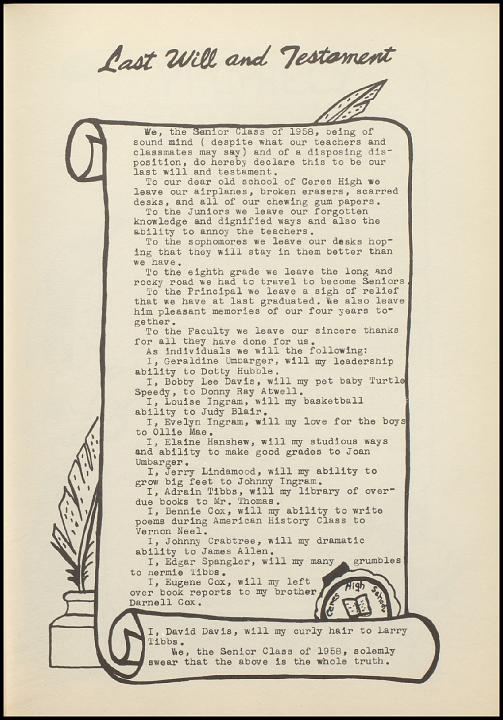 Last Will and Testament
We, the Senior Class of 1958, being of
sound mind ( despite what our teachers and
classmates may say) and of a disposing dis-
position, do hereby declare this to be our
last will and testament.
To our dear old school of Ceres High we
leave our airplanes, broken erasers, scarred
desks, and all of our chewing gum papers.
To the Juniors we leave our forgotten
knowledge and dignified ways and also the
ability to annoy the teachers.
To the sophomores we leave our desks hop-
ing that they will stay in them better than
we have.
To the eighth grade we leave the long and
rocky road we had to travel to become Seniors.
To the Principal we leave a sigh of relief
that we have at last graduated. We also leave
him pleasant memories of our four years to-
gether.
To the Faculty we leave our sincere thanks
for all they have done for us.
As individuals we will the following:
I, Geraldine Umbarger, will my leadership
ability to Dotty Hubble.
I, Bobby Lee Davis, will my pet baby Turtle
Speedy, to Donny Ray Atwell.
I, Louise Ingram, will my basketball
ability to Judy Blair.
I, Evelyn Ingram, will my love for the boys
to Ollie Mae.
I, Elaine Hanshew, will my studious ways
and ability to make good grades to Joan
Umbarger.
I, Jerry Lindamood, will my ability to
grow big feet to Johnny Ingram.
I, Adrain Tibbs, will my library of over-
due books to Mr. Thomas.
I, Bennie Cox, will my ability to write
poems during American History Class to
Vernon Neel.
I, Johnny Crabtree, will my dramatic
ability to James Allen.
I, Edgar Spangler, will my many grumbles
to Hermie Tibbs.
I, Eugene Cox, will my left
over book reports to my brother,
Darnell Cox.
Ceres High School
I, David Davis, will my curly hair to Larry
Tibbs.
We, the Senior Class of 1958, solemly
swear that the above is the whole truth.